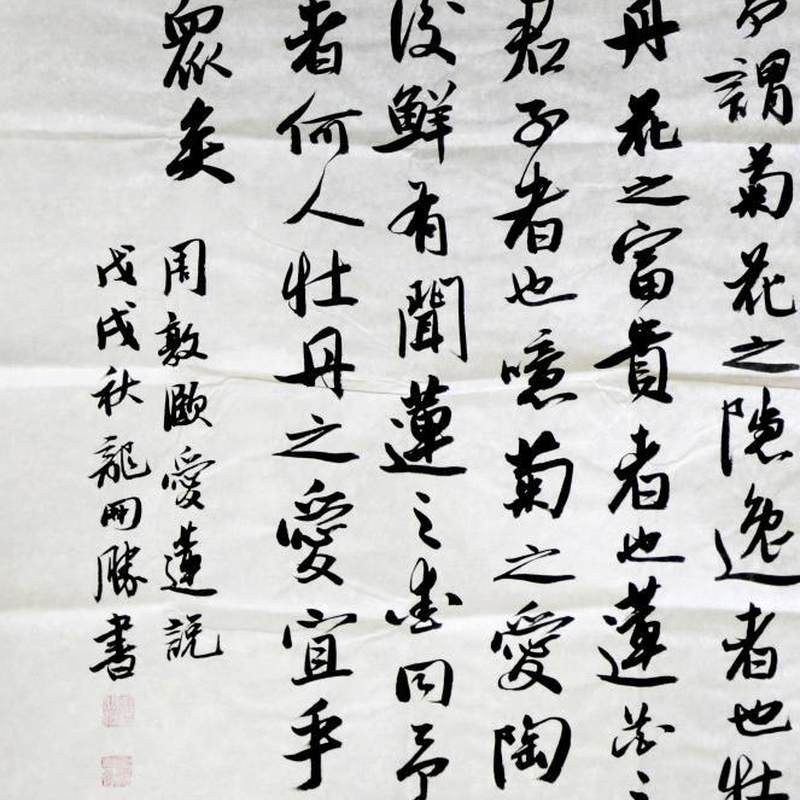 予謂菊花之隱逸者也牡
丹花之富貴者也蓮花之
君子者也噫菊之愛陶
後鮮有聞蓮之愛同予
者何人牡丹之愛宜乎
眾矣
周敦頤愛蓮說
戊戌秋龍開勝書